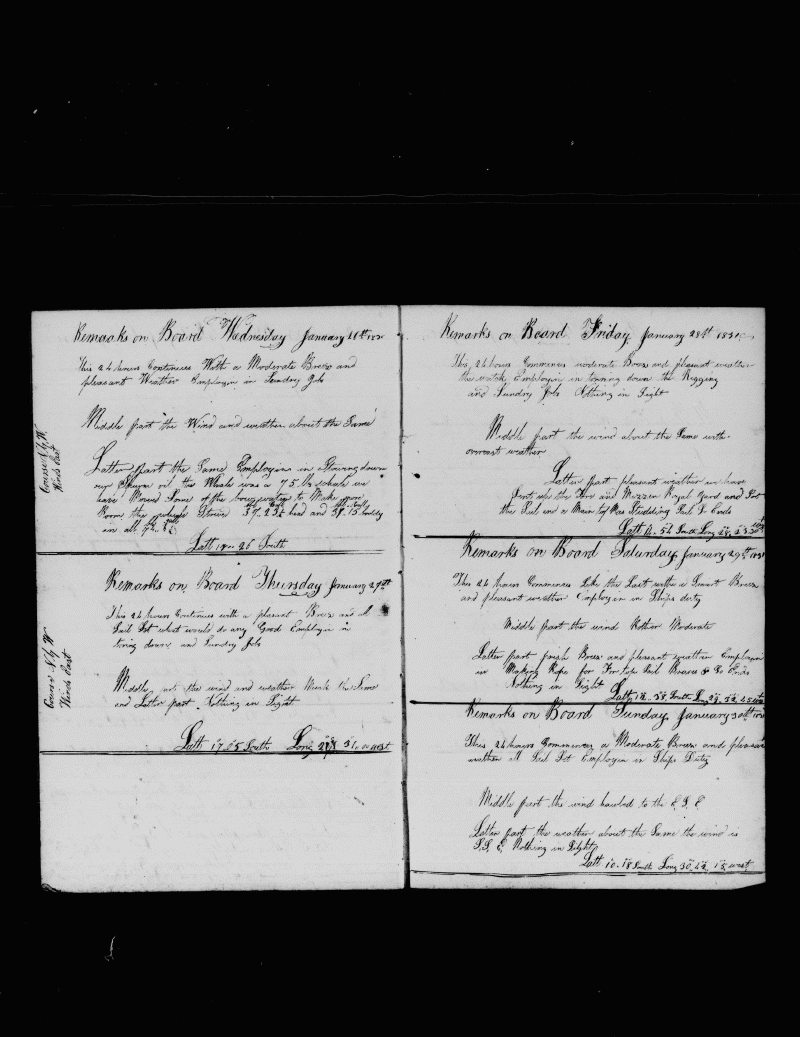 Remaaks on Board Wednesday January 26th
This 24 hours Continues With a Moderate Breze and
pleasant Weather Employin in Sundry Job
Middle part the Wind and weather about the Same
Latter part the Same Employin in Stowing down
the Whale was a 75 lb whale we
have Moved Some of the to Make
Room the whole Stowd head and
in all
Latt 26 South
Course N by W
Winds East
Remarks on Board Thursday January 27th
This 24 hours Continues with a pleasant Breze and all
Sail Set what would do any Good Employin in
down and Sundry Job
Middle part the wind and weather Much the Same
and Latter part Nothing in Sight
Latt 17.05 South Long west
Course N by W
Winds East
Remarks on Board Friday January 28th
This 24 hours Commences moderate Breze and pleasant weather
the watch Employin in down the Rigging
and Sundry Jobs Nothing in Sight
Middle part the wind about the Same with
overcast weather
Latter part pleasant weather we have
Sent up the Fore and Mizzen Royal yard and Set
the Sail and a Main top Mas Studding Sail
Latt South Long
Remarks on Board Saturday January 29th
This 24 hours Commences Like the Last with a Smart Breze
and pleasant weather Employin in Ships duty
Middle part the wind Rother Moderate
Latter part fresh Breze and pleasant weather Employin
in Making Rope for For top Sail Braces
Nothing in Sight
Latt South Long
Remarks on Board Sunday January 30th
This 24 hours Commences a Moderate Breze and pleasant
weather all Sail Set Employin in Ships Duty
Middle part the wind hawled to the E.S.E
Latter part the weather about the Same the wind is
S.S.E. Nothing in Sight
Latt 10.18 South Long 30 west